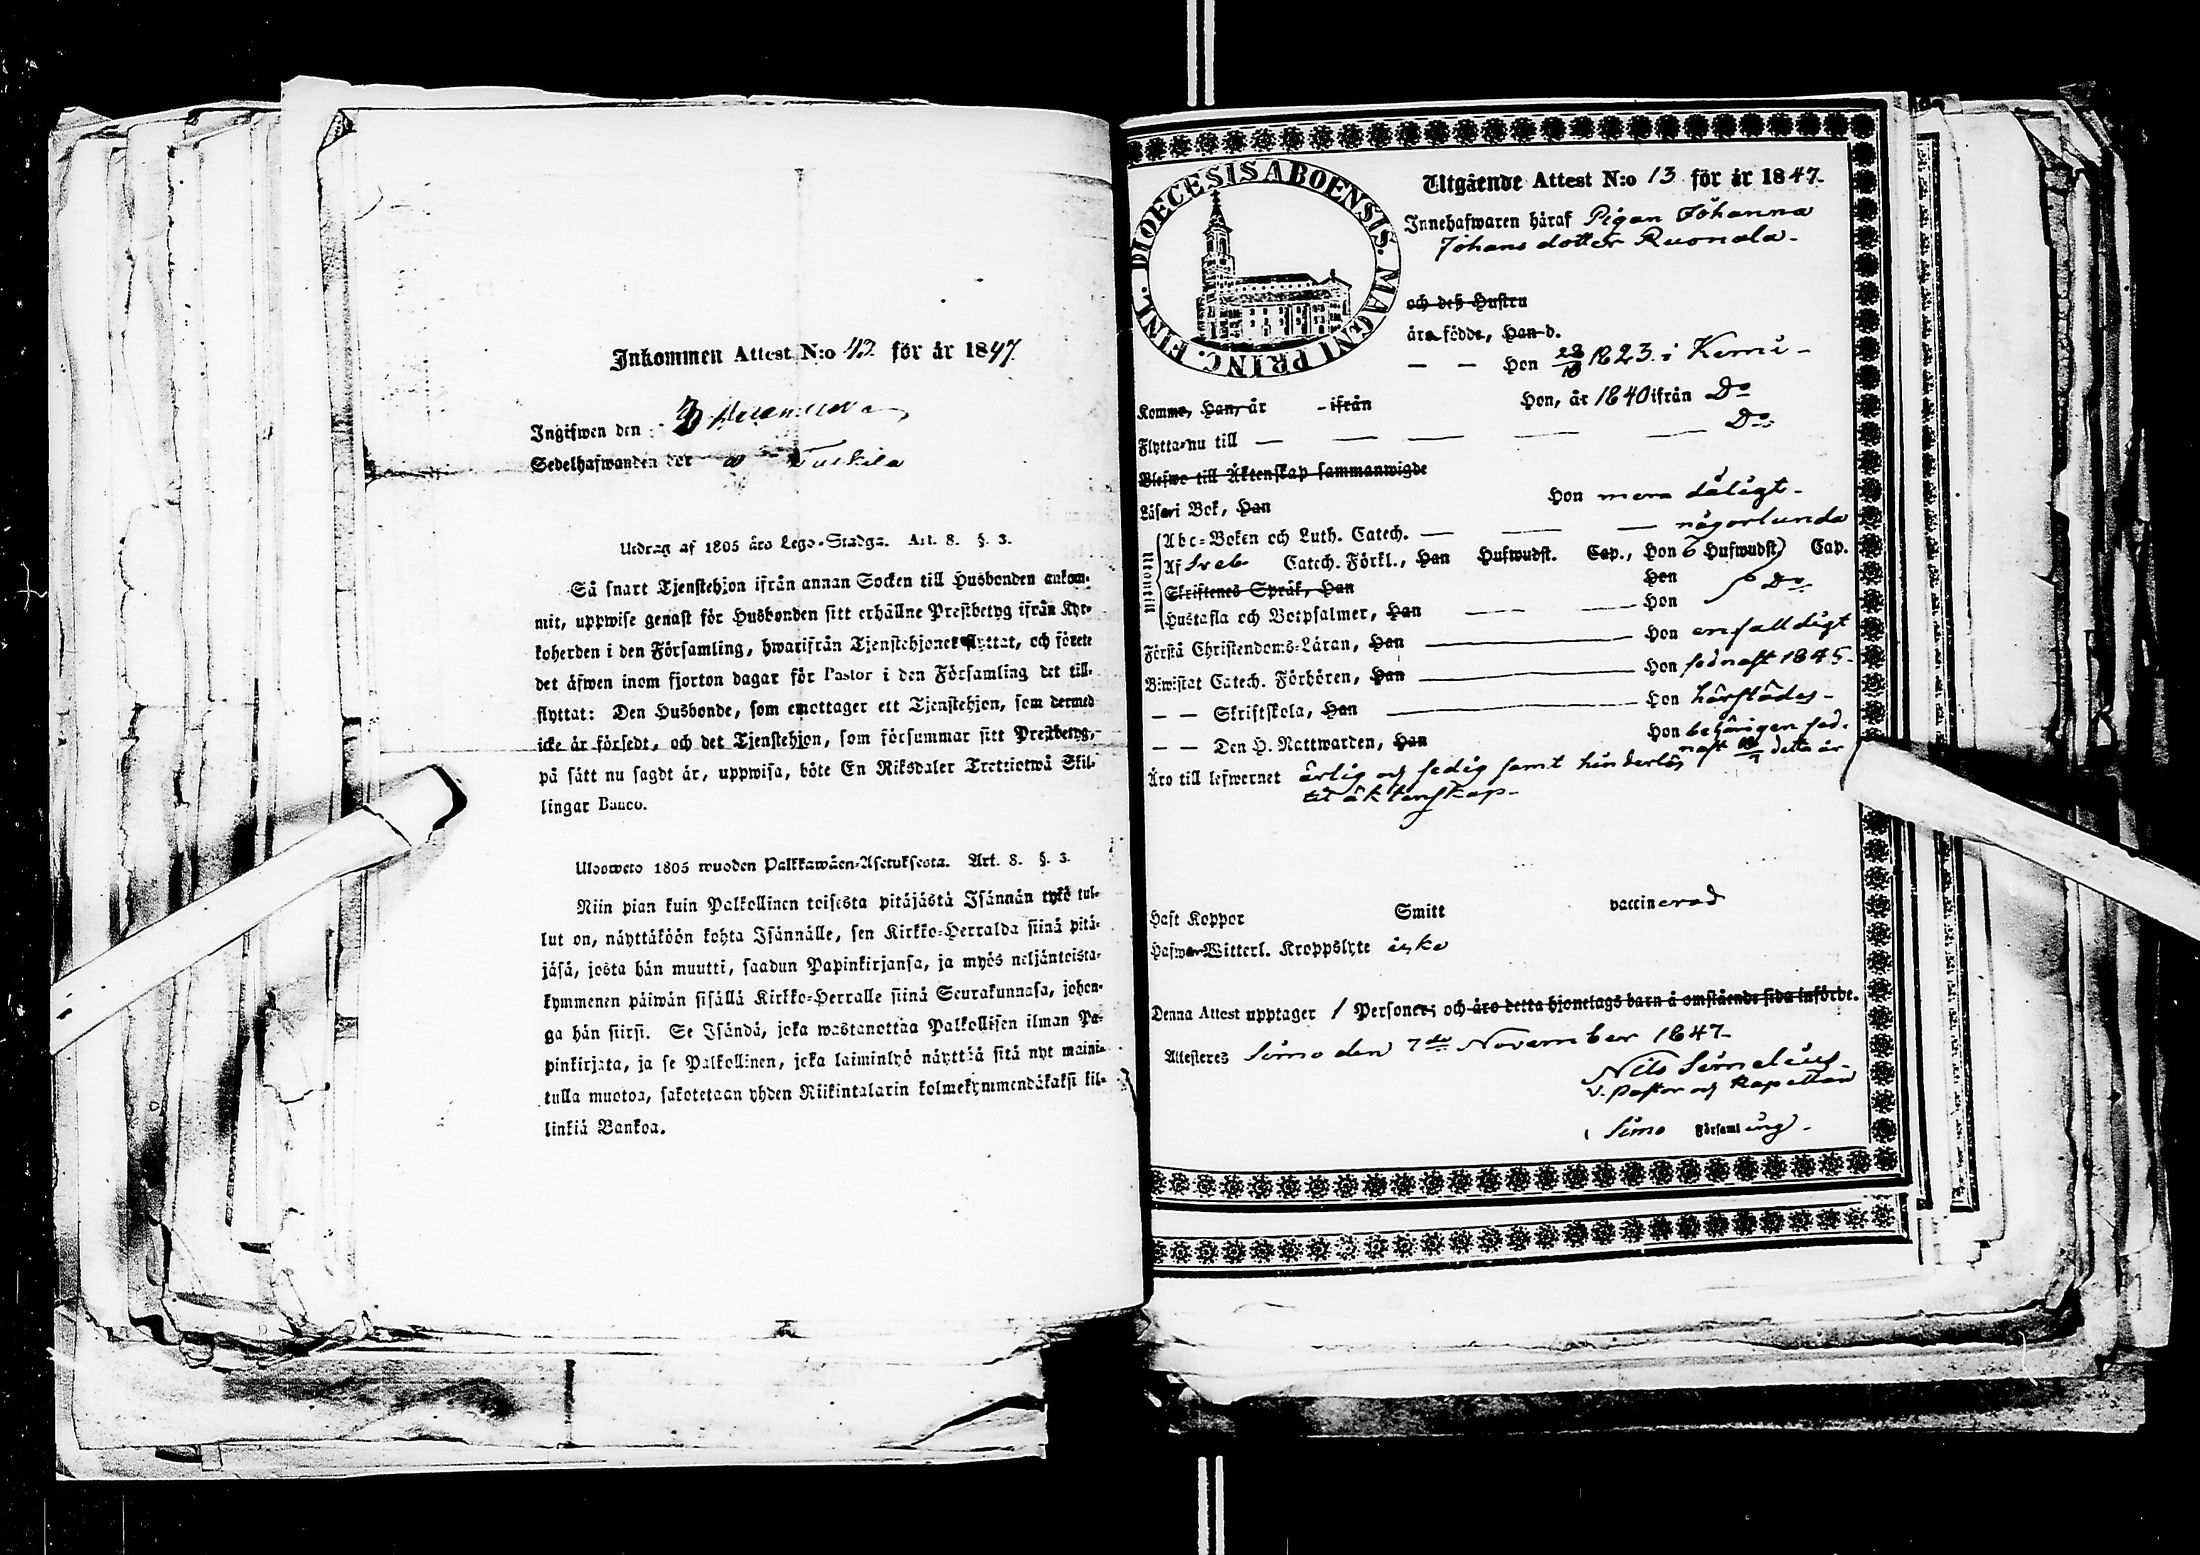 Inkommen Attest N:o 42 för år 1847
Ingifwen den
Sedelhafwanden der
Utdrag af 1805 års Lego-Stadga. Art. 8. §. 3.
Så snart Tjenstehjon ifrån annan Socken till Husbonden ankom-
mit, uppwise genast för Husbonden sitt erhållne Prestbetyg ifrån Kyr-
koherden i den Församling, hwarifrån Tjenstehjonet flyttat, och förete
det äfwen inom fjorton dagar för Pastor i den Församling det till-
flyttat: Den Husbonde, som emottager ett Tjenstehjon, som dermed
icke är försedt, och det Tjenstehjon, som försummar sitt Prestbetyg,
på sätt nu sagdt är, uppwisa, böte En Riksdaler Trettiotwå Skil-
lingar Banco.
Uloswero 1805 wuoden Palkkawäen-Asetuksesta. Art. 8. §. 3.
Niin pian kuin Palkollinen toisesta pitäjästä Isännän tykö tul-
lut on, näyttäköön kohta Isännälle, sen Kirkko-Herralda siinä pitä-
jäsä, josta hän muutti, saadun Papinkirjansa, ja myös neljäntoista-
kymmenen päiwän sisällä Kirkko-Herralle siinä Seurakunnasa, johon-
ga hän siirsi. Se Isändä, joka wastanottaa Palkollisen ilman Pa-
pinkirjata, ja se Palkollinen, joka laiminlyö näyttää sitä nyt maini-
tulla muotoa, sakotetaan yhden Riikintalarin kolmekymmendäkaksi kil-
linkiä Bankoa.
DIOECESIS ABOENSIS. MAGNI PRINC. FINL.
Utgående Attest N:o 13 för år 1847.
Innehafwaren häraf Pigan Johanna
Johansdotter Ruonala
och deß Hustru
äro födde, Han d.
— — Hon 28/10 1823. i Kemi
Komme, Han, år - ifrån Hon, år 1840 ifrån Do
Flytta nu till — — — — — Do
Blefwe till Äktenskap sammanwigde
Läser i Bok, Han Hon mera dåligt
Utantill
Abc-Boken och Luth. Catech. — — — någorlunda
Af Sveb Catech. Förkl., Han Hufwudst. Cap., Hon 6 Hufwudst) Cap.
Skriftenes Språk, Han Hon
Hustafla och Botpsalmer, Han — — Hon Do
Förstå Christendoms-Läran, Han — Hon enfalldigt
Biwistat Catech. Förhören, Han — Hon sednast 1845.
— — Skriftskola, Han — Hon härstädes
— — Den H. Nattwarden, Han Hon behörigen sed-
nast detta år
Äro till lefwernet ärlig och sedig samt hinderlös
til äktenskap
Haft Koppor Smitt vaccinerad
Hafwer Witterl. Kroppslyte icke
Denna Attest upptager 1 Personer; och äro detta hjonelags barn å omstående sida införde.
Attesteres Simo den 7de November 1847
Nils Simelius
V. Pastor och Kapellan
i Simo Församling